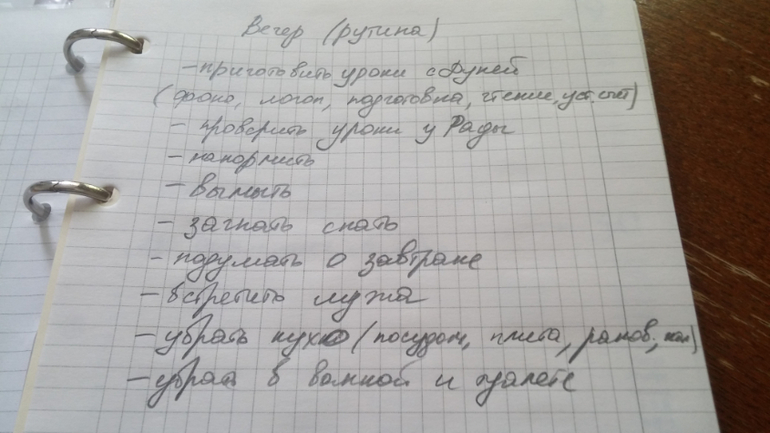 Вечер (рутина)
- приготовить уроки с Дуней
(фоно, логоп, подготовка, чтение, уст. счет)
- проверить уроки у Рады
- накормить
- вымыть
- загнать спать
- подумать о завтраке
- встретить мужа
- убрать кухню (посудом, плита, раков, пол)
- убрать в ванной и туалете